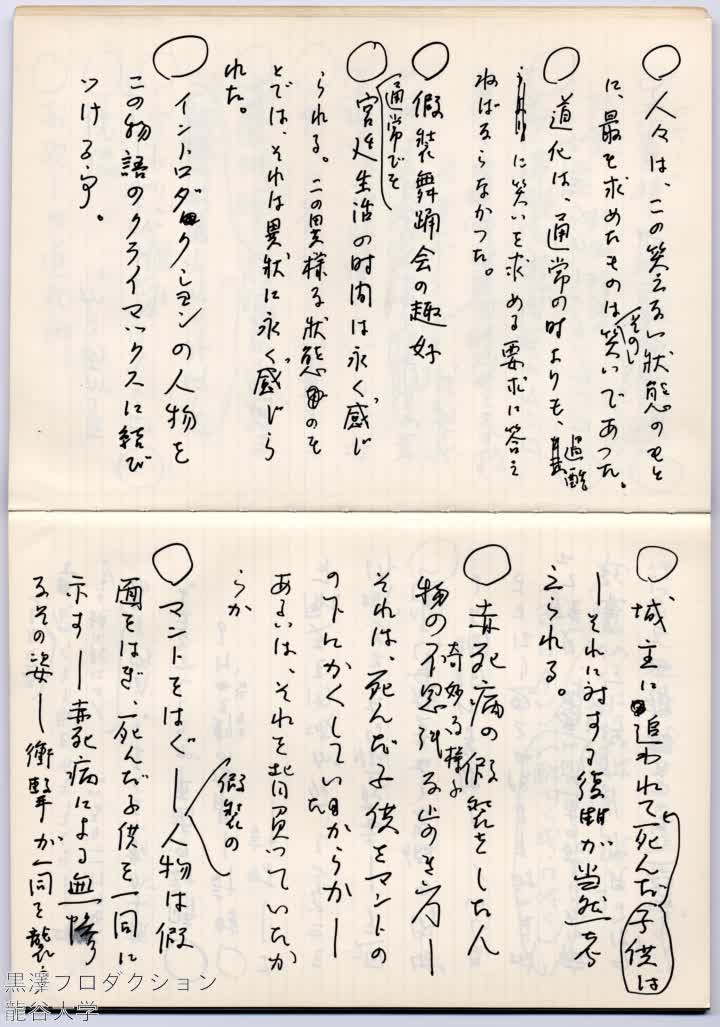 ○人々は、この笑えない状態のもと
に、最も求めたものは(その)笑いであつた。
○道化は、通常の时よりも、過酷
に笑いを求める要求に答え
ねばならなかつた。
○假装舞踊会の趣好
(通常でも)
○宮廷人生活の时间は永く感じ
られる。この異様な状態のも
とでは、それは異状に永く感じら
れた。
○イントロダクションの人物を
この物語のクライマックスに結び
つける事。
○城主に追われて死んだ子供は
―それに対する復讐が当然考
えられる。
○赤死病の假装をした人
物の不思议な歩き方―
奇妙な様子
それは、死んだ子供をマントの
下にかくしていたからか―
あるいは、それを背買つていたか
らか
○マントをはぐ―人物は假
(假装の
面をはぎ、死んだ子供を一同に
示す―赤死病による無惨
なその姿―衝撃が一同を襲
黒澤プロダクション
龍谷大学